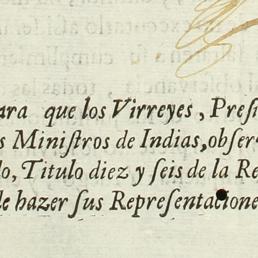 ara que los Virreyes, Presi
s Miniſtros de Indias, obſer
lo, Titulo diez y ſeis de la Re
de hazer ſus Repreſentacione